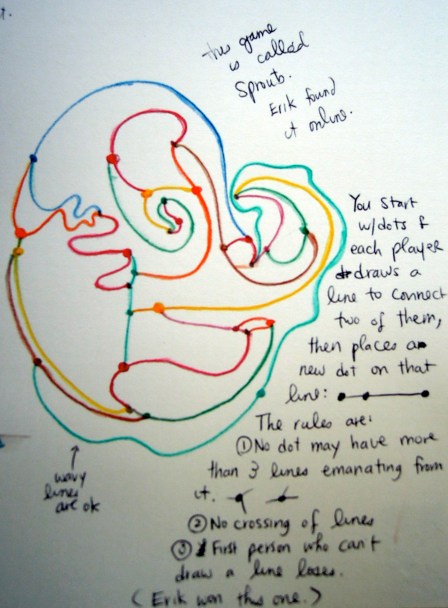 t.
this game
is called
Sprouts.
Erik found
it online.
You start
w/dots &
each player
draws a
line to connect
two of them,
then places a
new dot on that
line:
The rules are:
① No dot may have more
than 3 lines emanating from
it.
② No crossing of lines
③ First person who can't
draw a line loses.
(Erik won this one.)
↑
wavy
lines
are ok